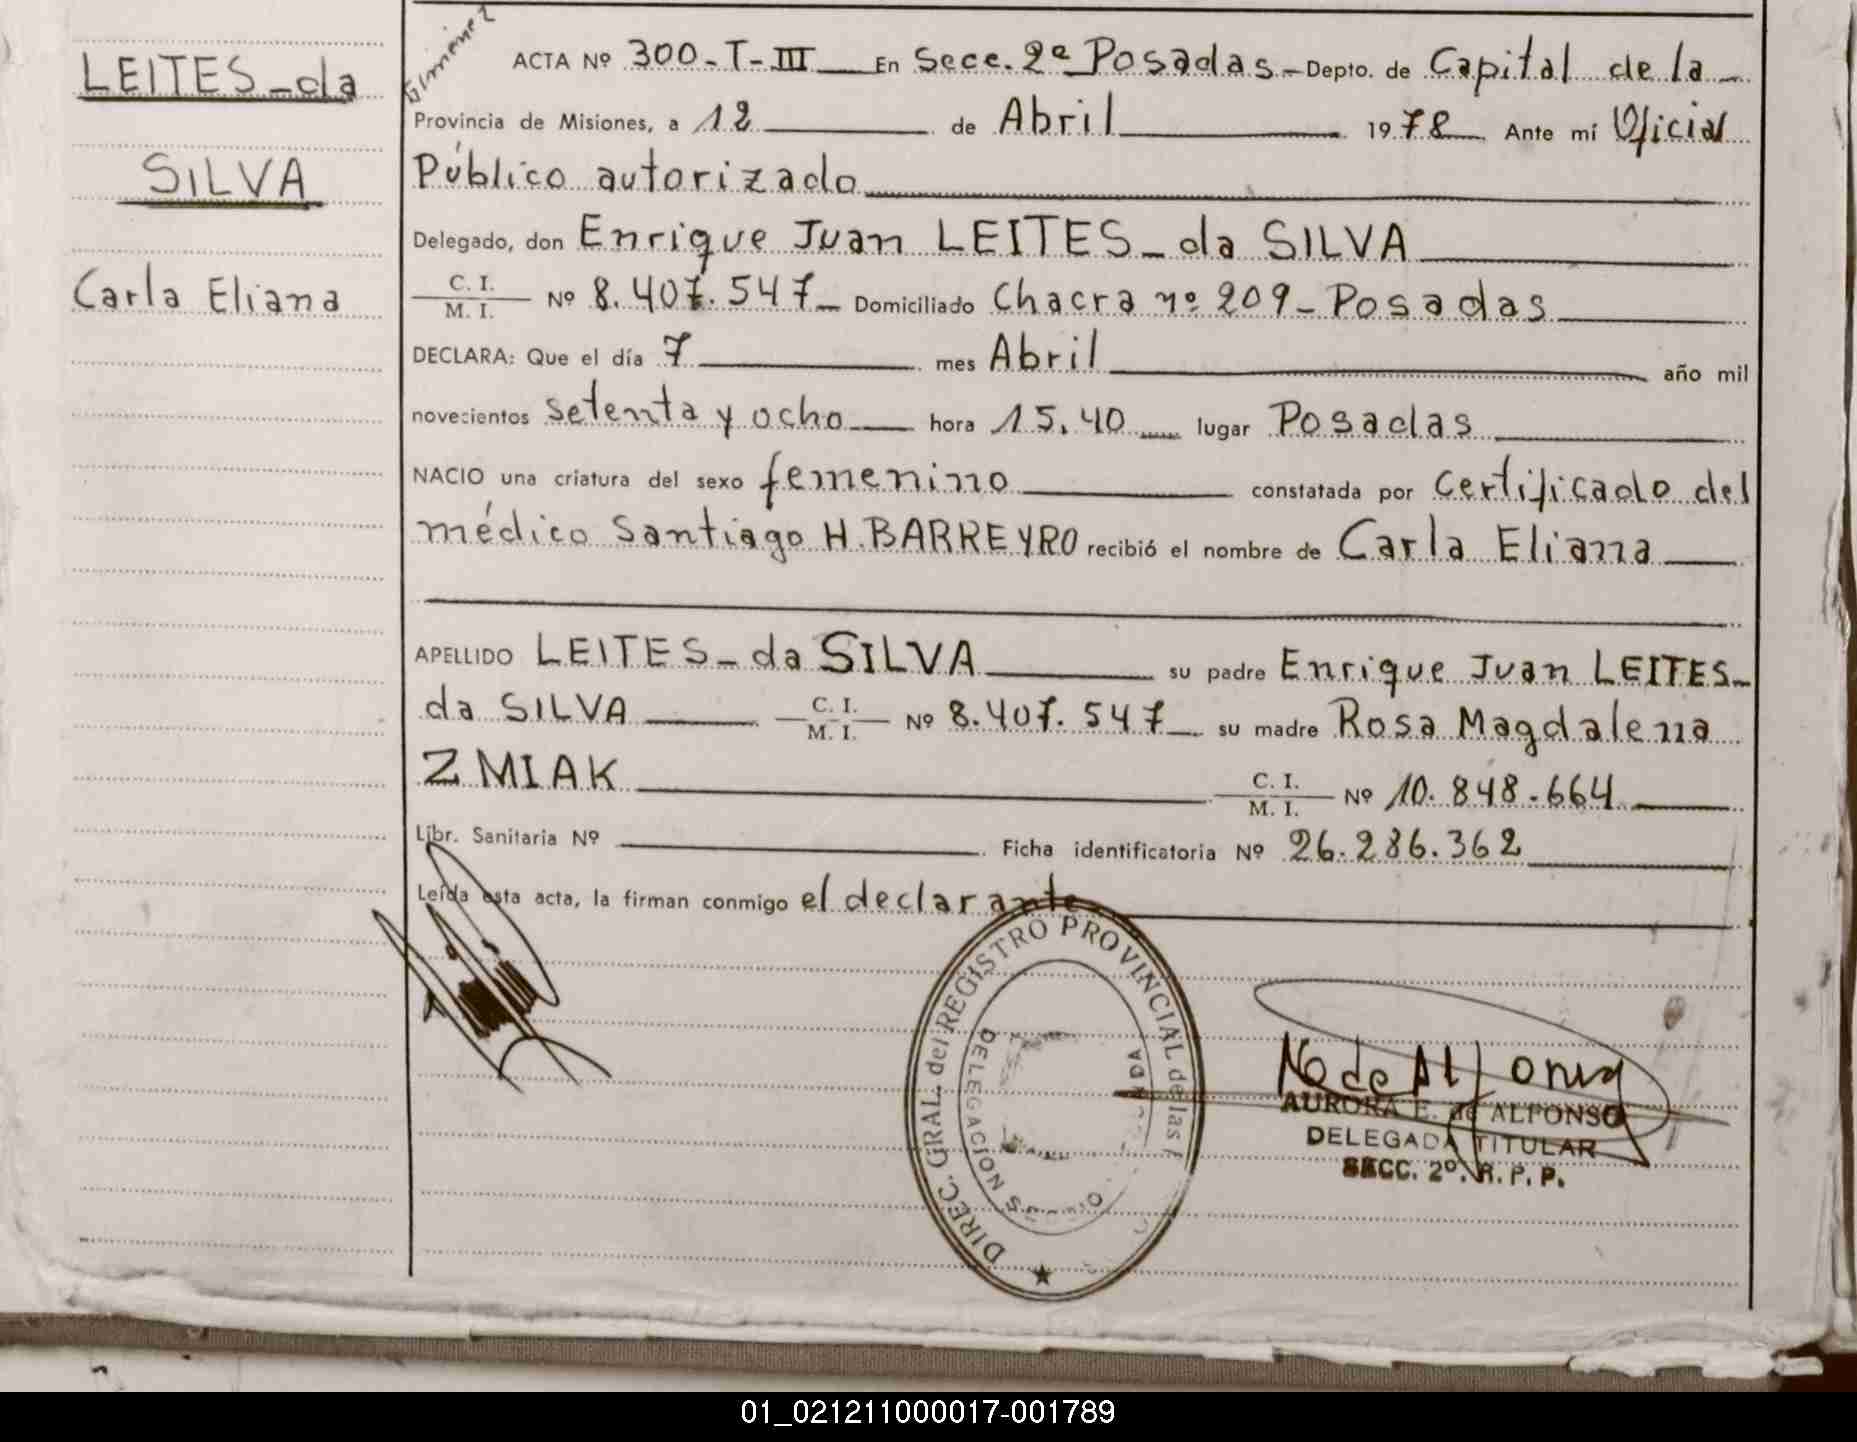 LEITES-da
SILVA
Carla Eliana
Giménez
ACTA Nº 300-T-III En Secc. 2ª Posadas - Depto. de Capital de la
Provincia de Misiones, a 12 de Abril 1978 Ante mí Oficial
Público autorizado
Delegado, don Enrique Juan LEITES-da SILVA
C. I.
M. I. Nº 8.407.547 - Domiciliado Chacra nº 209 - Posadas
DECLARA: Que el día 7 mes Abril año mil
novecientos setenta y ocho hora 15.40 lugar Posadas
NACIO una criatura del sexo femenino constatada por certificado del
médico Santiago H. BARREYRO recibió el nombre de Carla Eliana
APELLIDO LEITES-da SILVA su padre Enrique Juan LEITES-
da SILVA C. I.
M. I. Nº 8.407.547 su madre Rosa Magdalena
ZMIAK C. I.
M. I. Nº 10.848.664
Libr. Sanitaria Nº Ficha identificatoria Nº 26.286.362
Leída esta acta, la firman conmigo el declarante
DIREC. GRAL. del REGISTRO PROVINCIAL de las
DELEGACION
AURORA E. de ALFONSO
DELEGADA TITULAR
SECC. 2º. R. P. P.
01_021211000017-001789